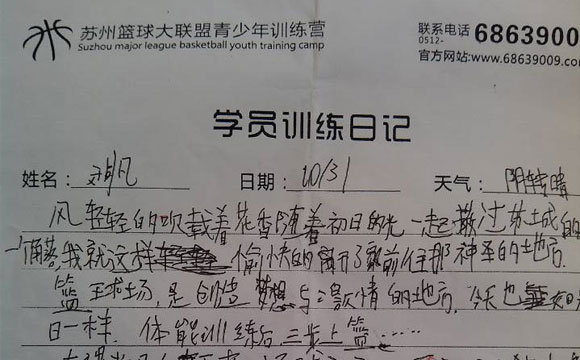 苏州篮球大联盟青少年训练营
Suzhou major league basketball youth training camp
联系电话
0512-
68639009
官方网站:www.68639009.com
学员训练日记
姓名: 凡
日期: 10/31
天气: 阴转晴
风轻轻的吹载着花香随着初日的光一起撒过苏城的
一角落,我就这样 愉快的 了 前往那神圣的地方
篮球场,是创造梦想与激情的地方,今天也 如
日一样. 体能训练后,三步上篮……